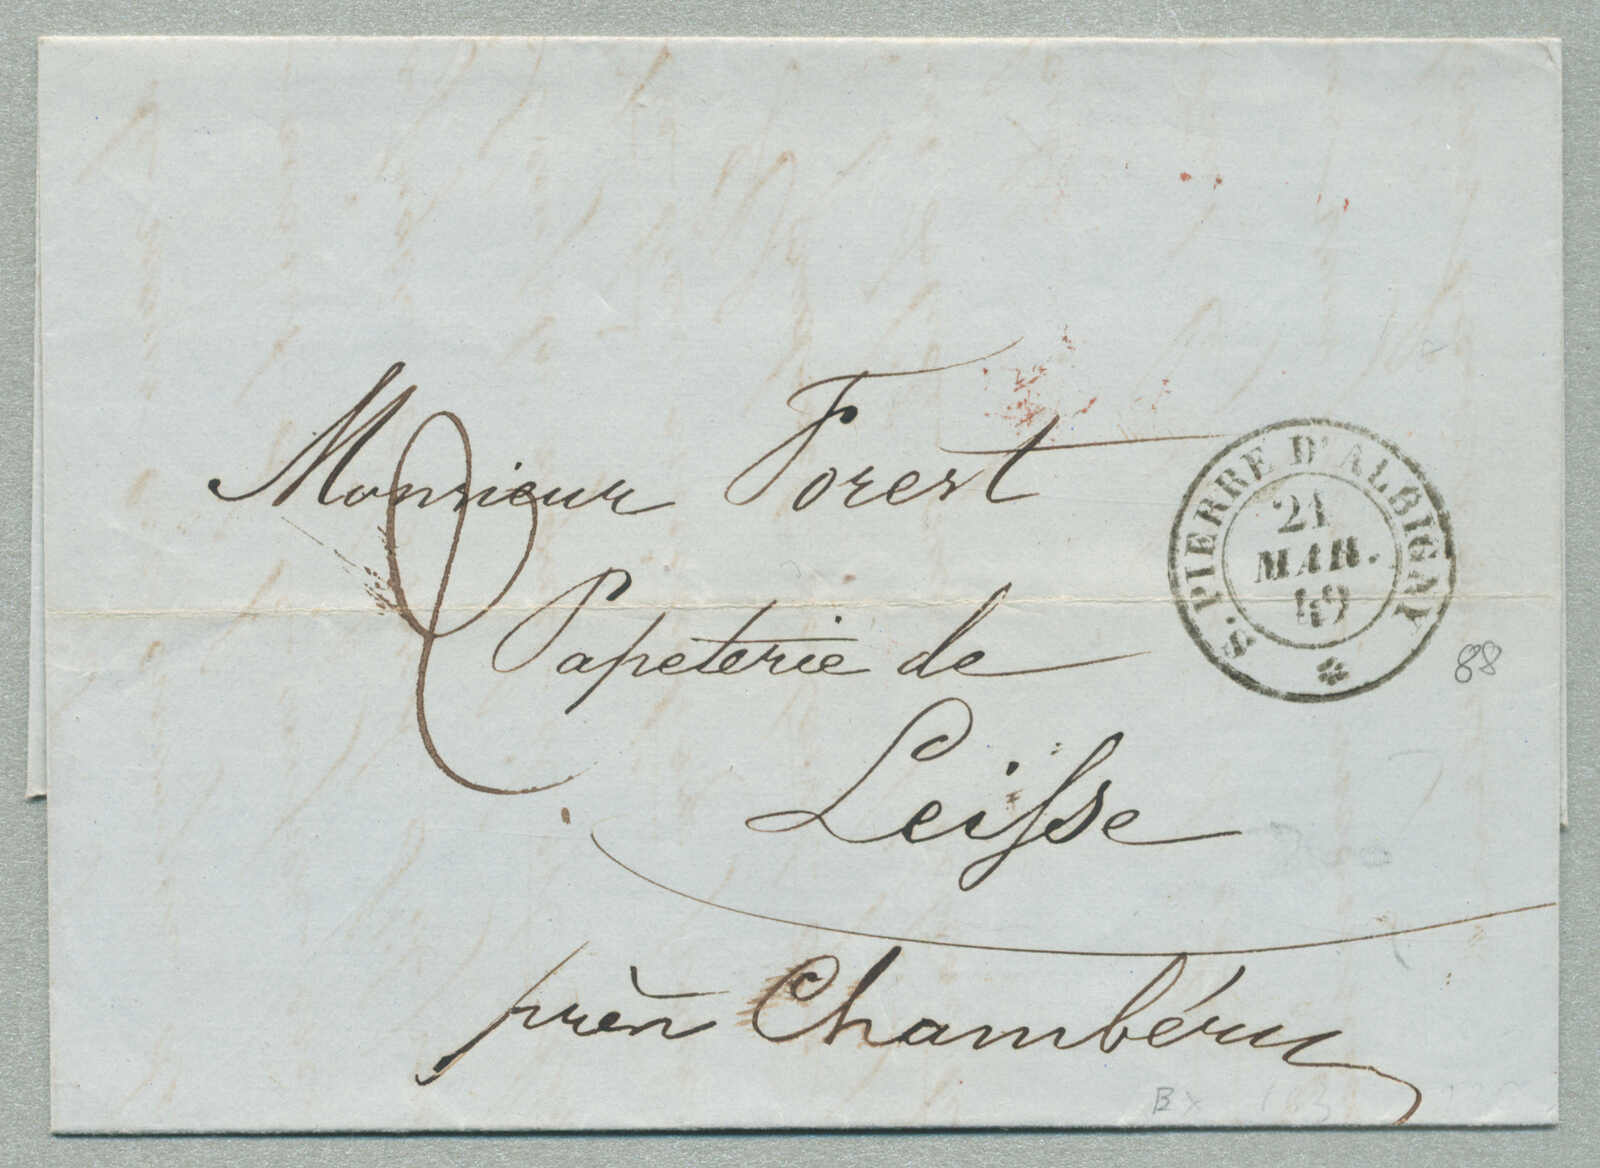 Monsieur Forest
Papeterie de
Leisse
près Chambéry
S. PIERRE D'ALBIGNY
21
MAR.
49
88
B x